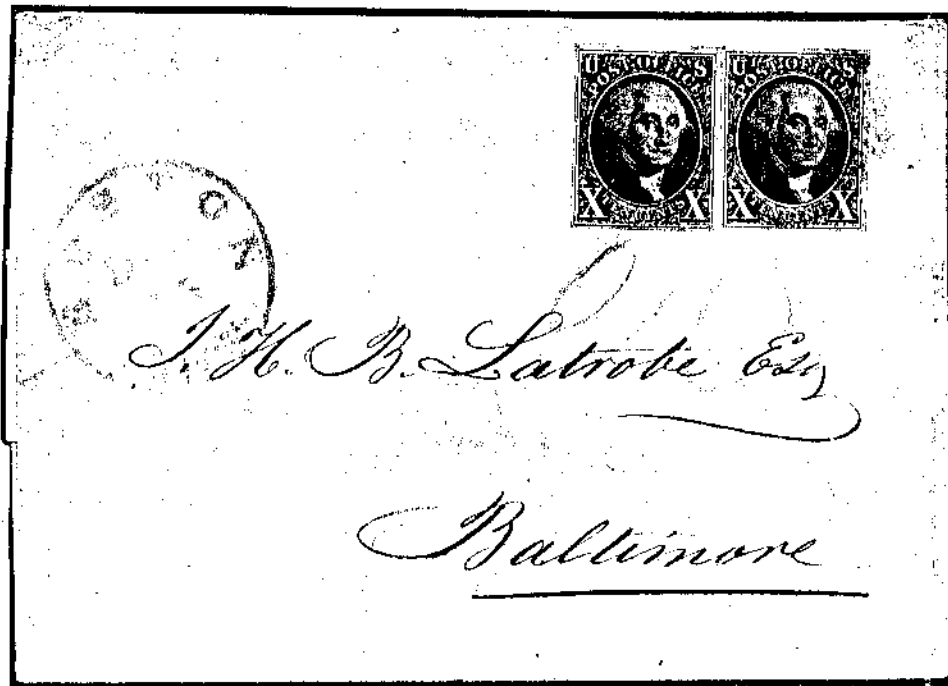 U S U S
POST OFFICE POST OFFICE
X X X X
J. H. B. Latrobe Esq
Baltimore